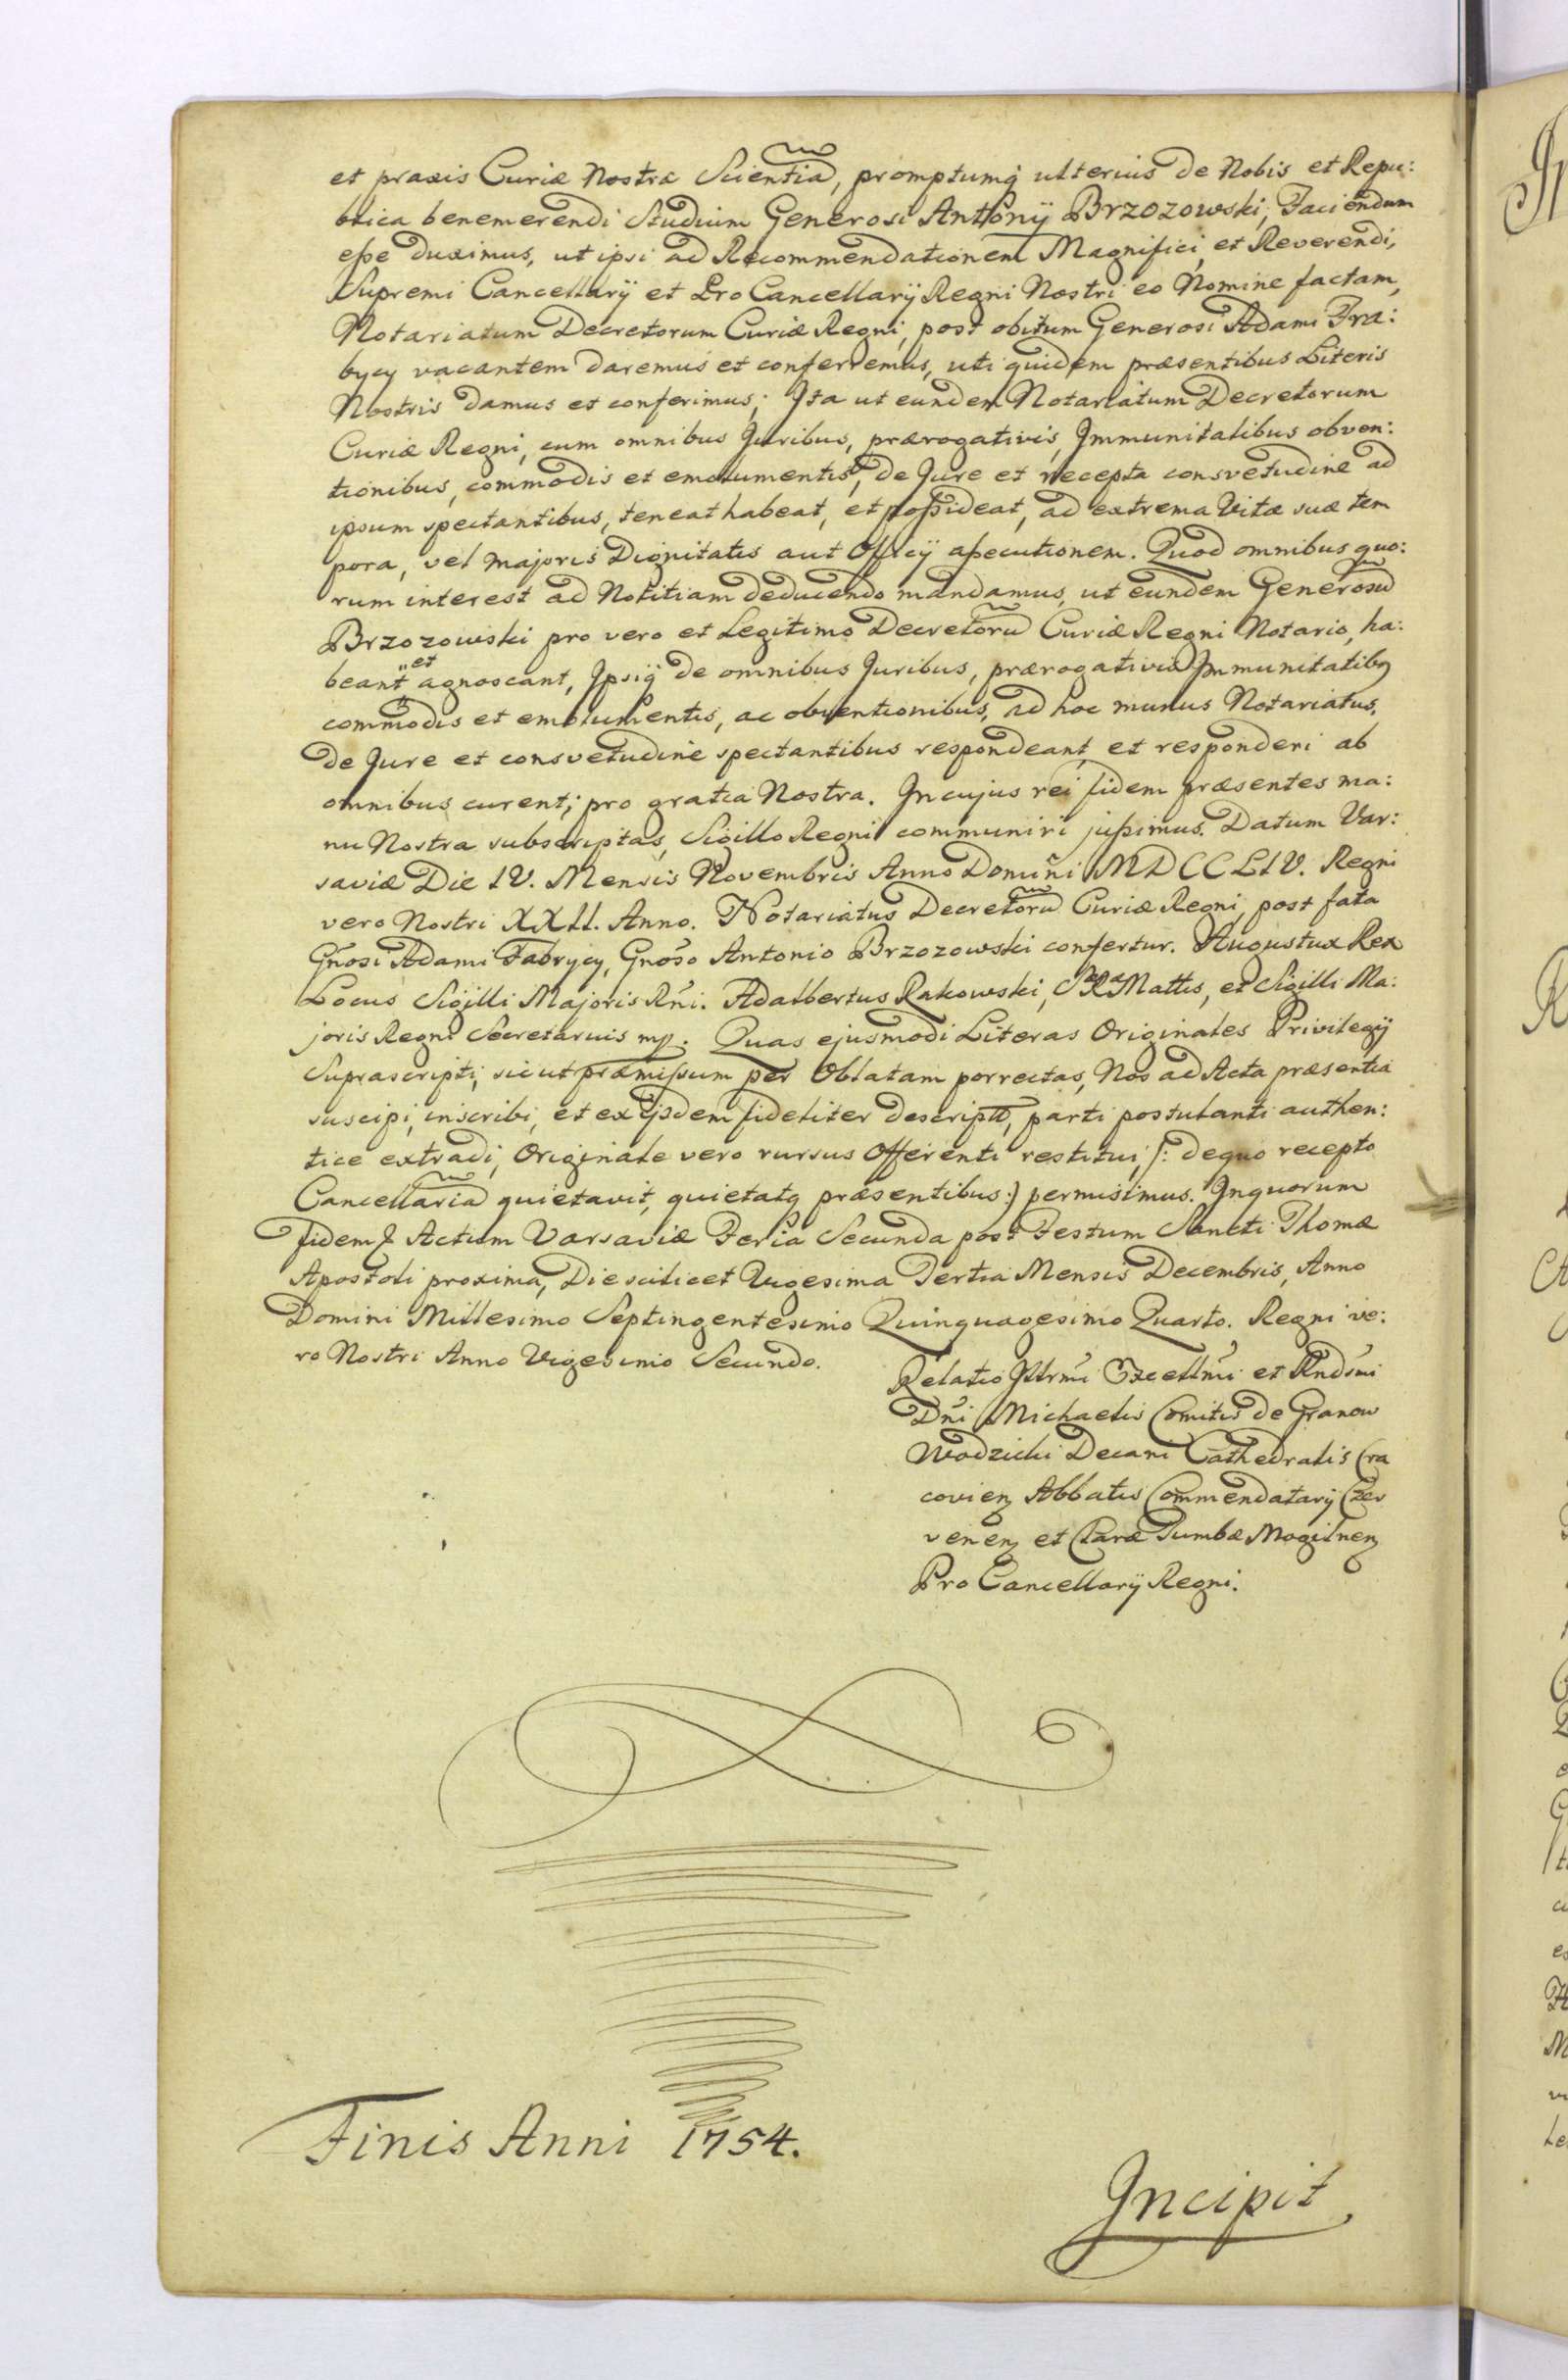 et praxis Curiæ Nostræ Scientia, promptumq̃ ulterius de Nobis et Repu:
blica benemerendi Studium Generosi Anthonÿ Brzozowski, Faciendum
eße duximus, ut ipsi ad Recommendationem Magnifici, et Reverendi,
Supremi Cancellarÿ et Pro Cancellarÿ Regni Nostri eo Nomine factam,
Notariatum Decretorum Curiæ Regni, post obitum Generosi Adami Fra:
bycy vacantem daremus et conferremus, uti quidem præsentibus Literis
Nostris damus et conferimus; Ita ut eundem Notariatum Decretorum
Curiæ Regni, cum omnibus Juribus, prærogativis, Immunitatibus obven:
tionibus, commodis et emolumentis, de Jure et recepta consvetudine ad
ipsum spectantibus, teneat habeat, et poßideat, ad extrema Vitæ suæ tem
pora, vel majoris Dignitatis aut Officÿ aßecutionem. Quod omnibus quo:
rum interest ad Notitiam deducendo mandamus, ut eundem Generosũ
Brzozowski pro vero et Legitimo Decretorũ Curiæ Regni Notario, ha:
beant et agnoscant, Ipsiq̃ de omnibus Juribus, prærogativis Immunitatibq
commodis et emolumentis, ac obventionibus, ad hoc munus Notariatus,
de Jure et consvetudine spectantibus respondeant, et responderi ab
omnibus curent; pro gratia Nostra. In cujus rei fidem præsentes ma:
nu Nostra subscriptas, Sigillo Regni communiri jußimus. Datum Var:
saviæ Die IV. Mensis Novembris Anno Domini MDCCLIV. Regni
vero Nostri XXII. Anno. Notariatus Decretorũ Curiæ Regni, post fata
Gnosi Adami Fabrycy, Gnõso Antonio Brzozowski confertur. Augustus Rex
Locus Sigilli Majoris Rñi. Adalbertus Rakowski, SRMattis, et Sigilli Ma:
joris Regni Secretarius mp. Quas ejusmodi Literas Originales Privilegÿ
Suprascripti, sicut præmissum per Oblatam porrectas, Nos ad Acta præsentia
suscipi, inscribi, et ex ijsdem fideliter descriptũ, parti postulanti authen:
tice extradi, Originale vero rursus Offerenti restitui, /: de quo recepto
Cancellaria quietavit, quietatq præsentibus :/ permisimus. In quorum
fidem & Actum Varsaviæ Feria Secunda post Festum Sancti Thomæ
Apostoli proxima, Die scilicet Vigesima Tertia Mensis Decembris, Anno
Domini Millesimo Septingentesimo Quinquagesimo Quarto. Regni ve:
ro Nostri Anno Vigesimo Secundo.
Relatio Illrmi Excellmi et Rndsmi
Dñi Michaelis Comitis de Granow
Wodzicki Decani Cathedralis Cra
covienq Abbatis Commendatarÿ Czer
venenq et Claræ Tumbæ Mogilnenq
Pro Cancellarÿ Regni.
Finis Anni 1754.
Incipit